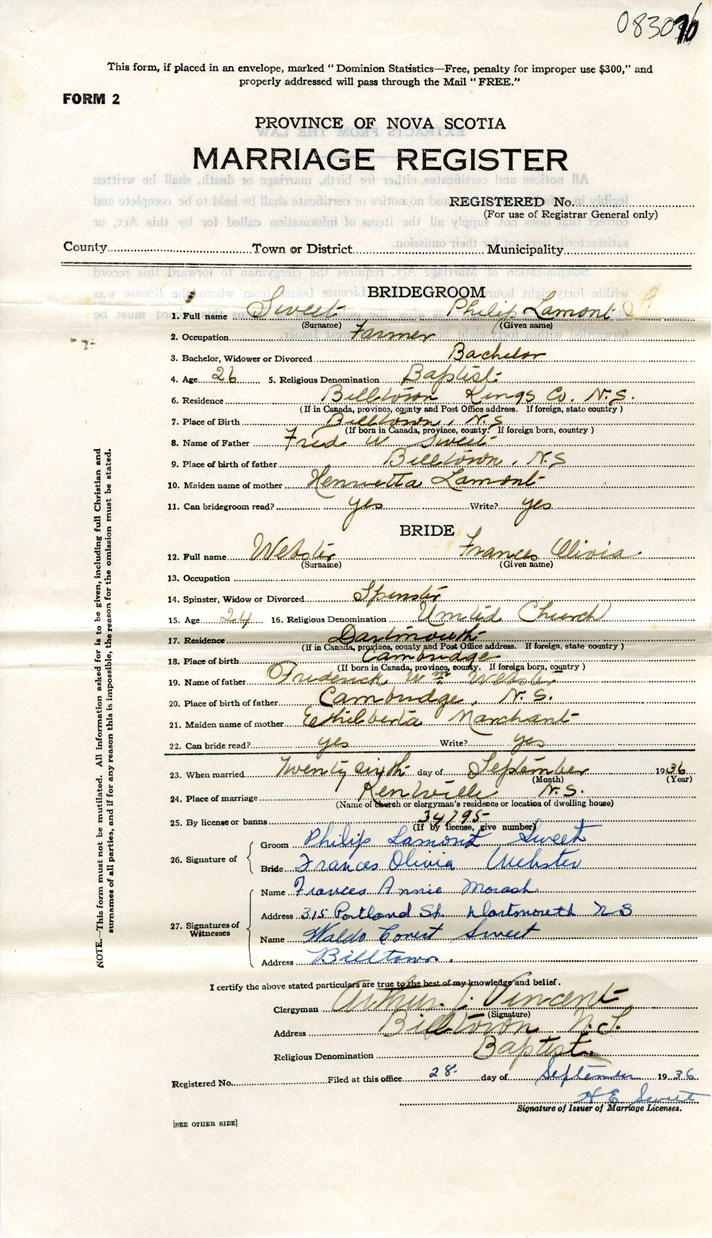 0830
This form, if placed in an envelope, marked "Dominion Statistics—Free, penalty for improper use $300," and
properly addressed will pass through the Mail "FREE."
FORM 2
PROVINCE OF NOVA SCOTIA
MARRIAGE REGISTER
REGISTERED No.
(For use of Registrar General only)
County Town or District Municipality
BRIDEGROOM
1. Full name Sweet Philip Lamont
(Surname) (Given name)
2. Occupation Farmer
3. Bachelor, Widower or Divorced Bachelor
4. Age 26 5. Religious Denomination Baptist
6. Residence Billtown Kings Co. N.S.
(If in Canada, province, county and Post Office address. If foreign, state country)
7. Place of Birth Billtown, N.S
(If born in Canada, province, county. If foreign born, country)
8. Name of Father Fred W Sweet
9. Place of birth of father Billtown, N.S
10. Maiden name of mother Henrietta Lamont
11. Can bridegroom read? yes Write? yes
BRIDE
12. Full name Webster Frances Olivia
(Surname) (Given name)
13. Occupation
14. Spinster, Widow or Divorced Spinster
15. Age 24 16. Religious Denomination United Church
17. Residence Dartmouth
(If in Canada, province, county and Post Office address. If foreign, state country)
18. Place of birth Cambridge
(If born in Canada, province, county. If foreign born, country)
19. Name of father Frederick Wm Webster
20. Place of birth of father Cambridge, N.S.
21. Maiden name of mother Ethilberta Marchant
22. Can bride read? yes Write? yes
23. When married Twenty sixth day of September 1936
(Month) (Year)
24. Place of marriage Kentville N.S.
(Name of church or clergyman's residence or location of dwelling house)
25. By license or banns 34795
(If by license, give number)
26. Signature of
Groom Philip Lamont Sweet
Bride Frances Olivia Webster
27. Signatures of Witnesses
Name Frances Annie Morash
Address 315 Portland St. Dartmouth N S
Name Waldo Sweet
Address Billtown.
I certify the above stated particulars are true to the best of my knowledge and belief.
Clergyman Arthur J. Vincent
(Signature)
Address Billtown N.S.
Religious Denomination Baptist
Registered No. Filed at this office 28 day of September 1936
H E Sweet
Signature of Issuer of Marriage Licenses.
[SEE OTHER SIDE]
NOTE.—This form must not be mutilated. All information asked for is to be given, including full Christian and
surnames of all parties, and if for any reason this is impossible, the reason for the omission must be stated.